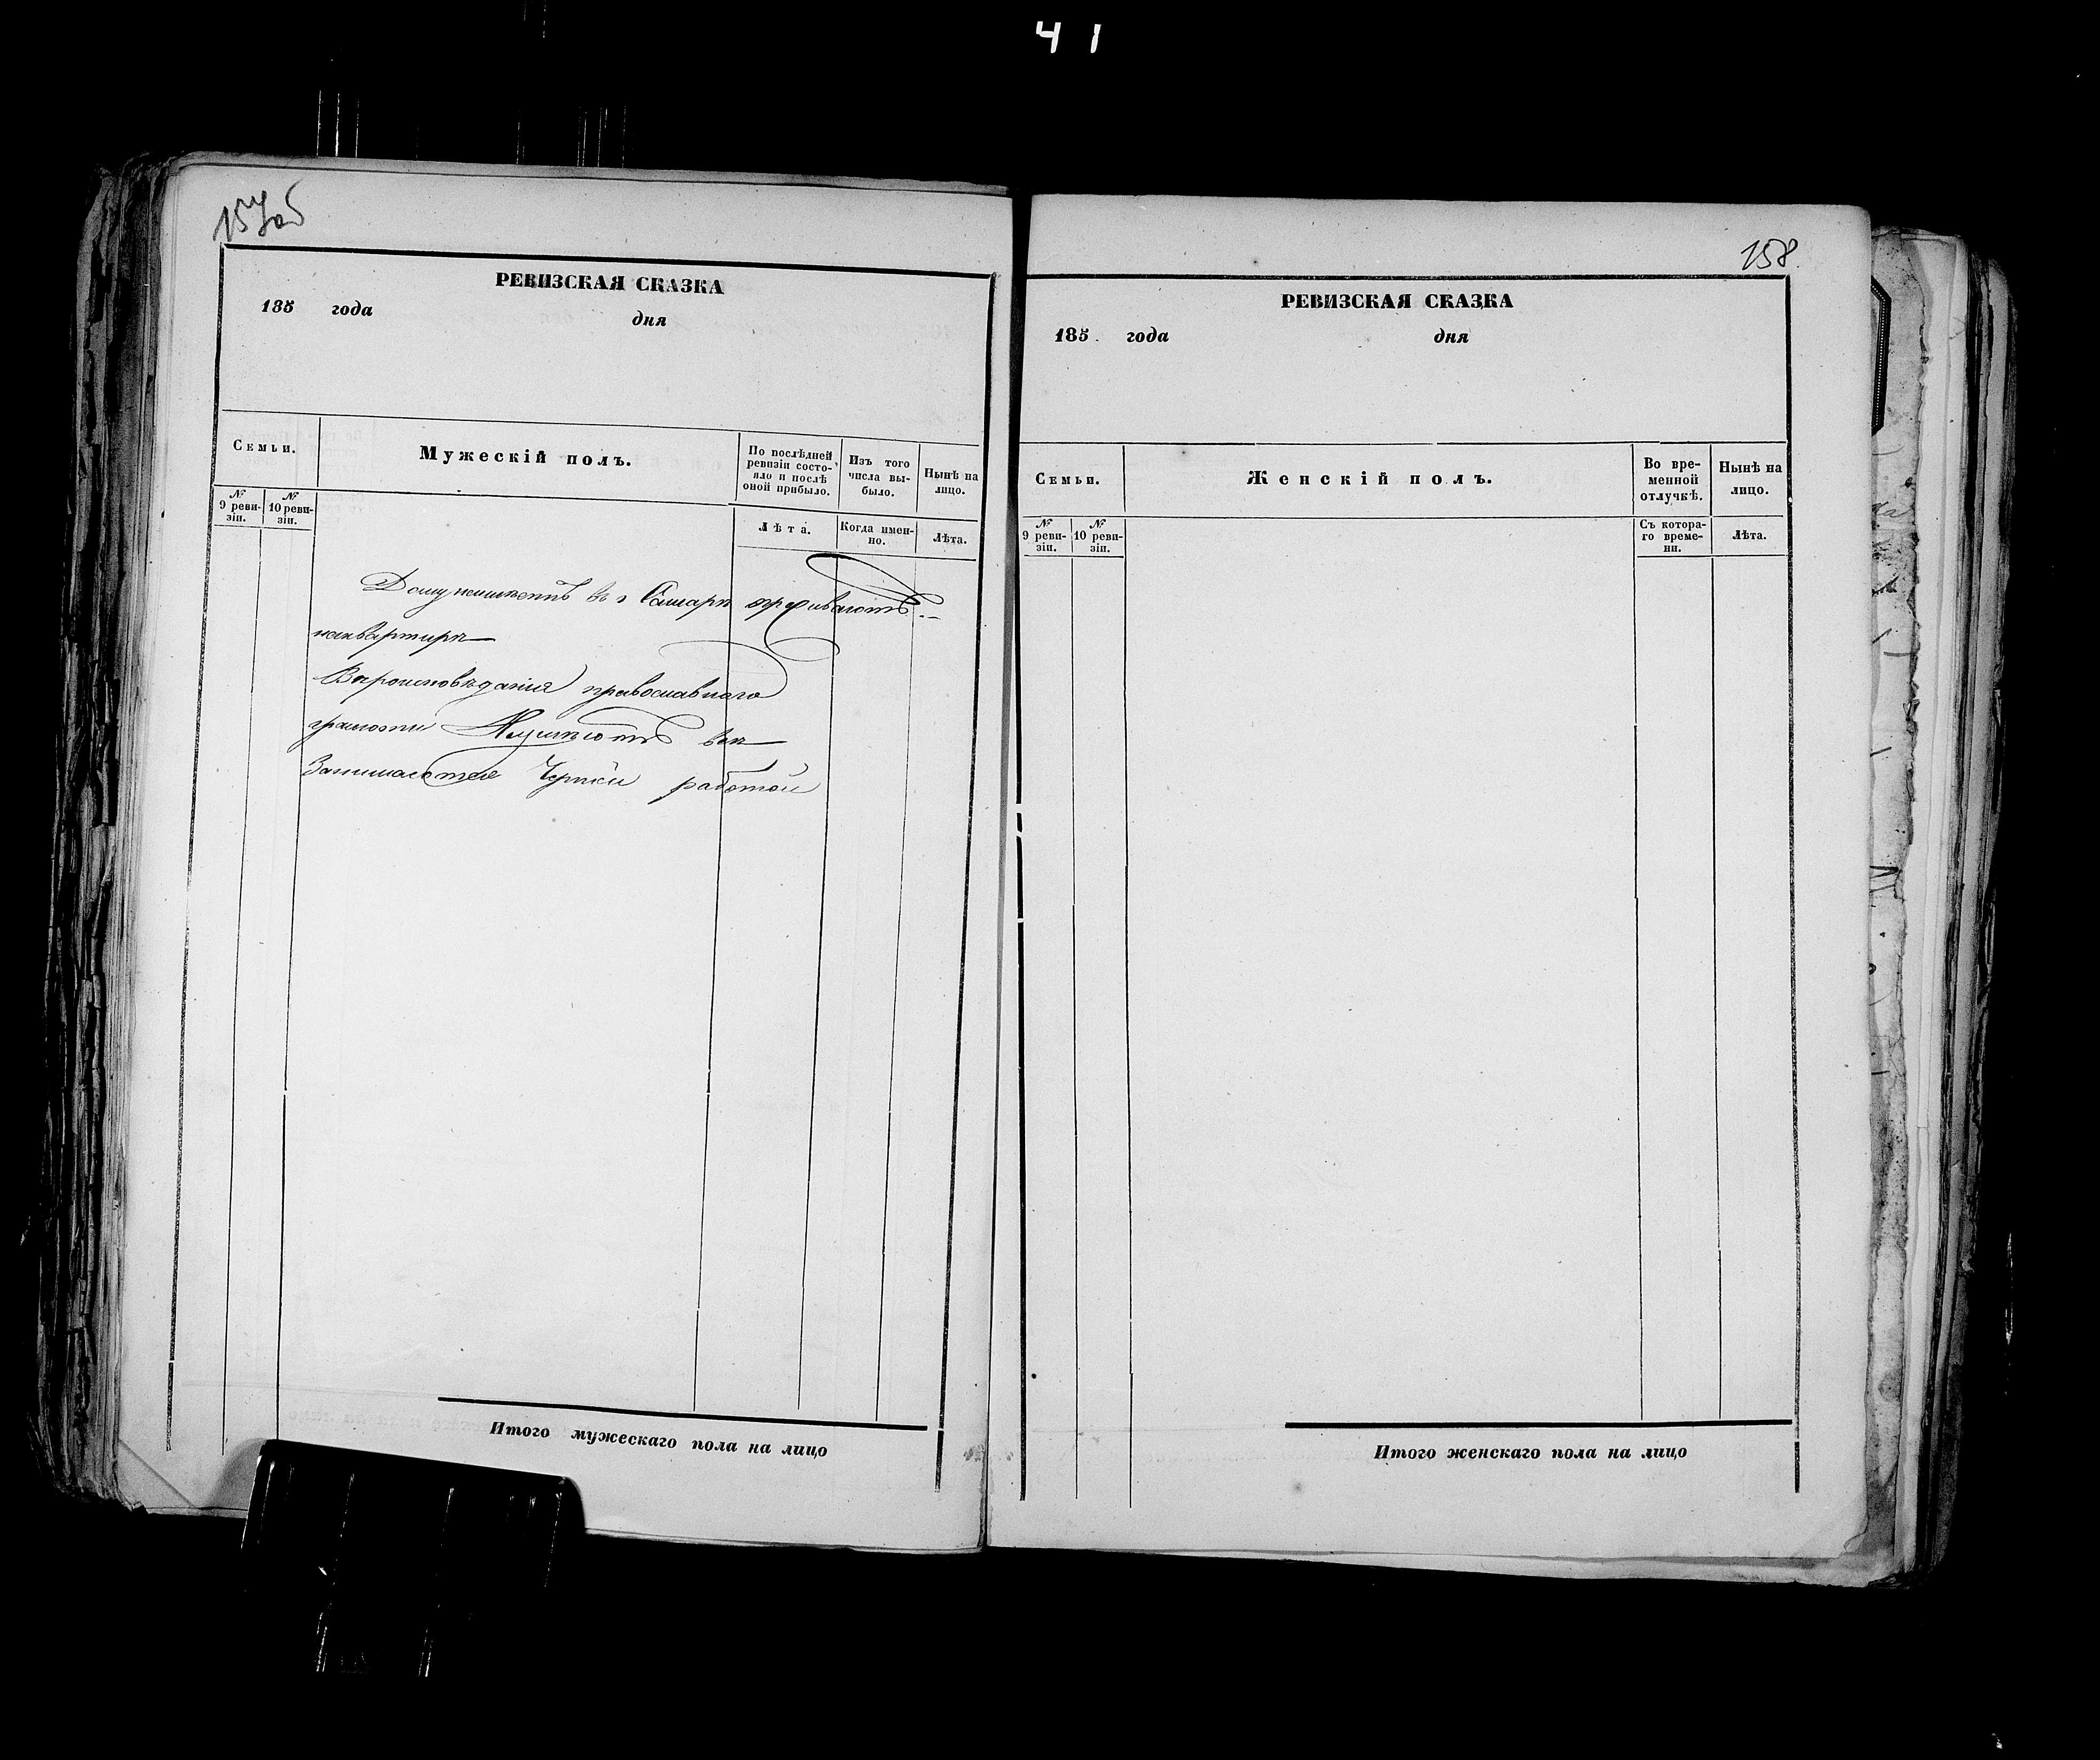 41
157об
РЕВИЗСКАЯ СКАЗКА
185 года дня
Семьи.
Мужескій полъ.
По послѣдней ревизіи состояло и послѣ оной прибыло.
Изъ того числа выбыло.
Нынѣ на лицо.
№ 9 ревизіи.
№ 10 ревизіи.
Лѣта.
Когда именно.
Лѣта.
Дому неимеютъ въ г Самаре проживаютъ
наквартире
Вероисповѣдания православнаго
грамоти Неумеютъ все
Занимаются Черной работой
Итого мужескаго пола на лицо
158.
РЕВИЗСКАЯ СКАЗКА
185 года дня
Семьи.
Женскій полъ.
Во временной отлучкѣ.
Нынѣ на лицо.
№ 9 ревизіи.
№ 10 ревизіи.
Съ котораго времени.
Лѣта.
Итого женскаго пола на лицо